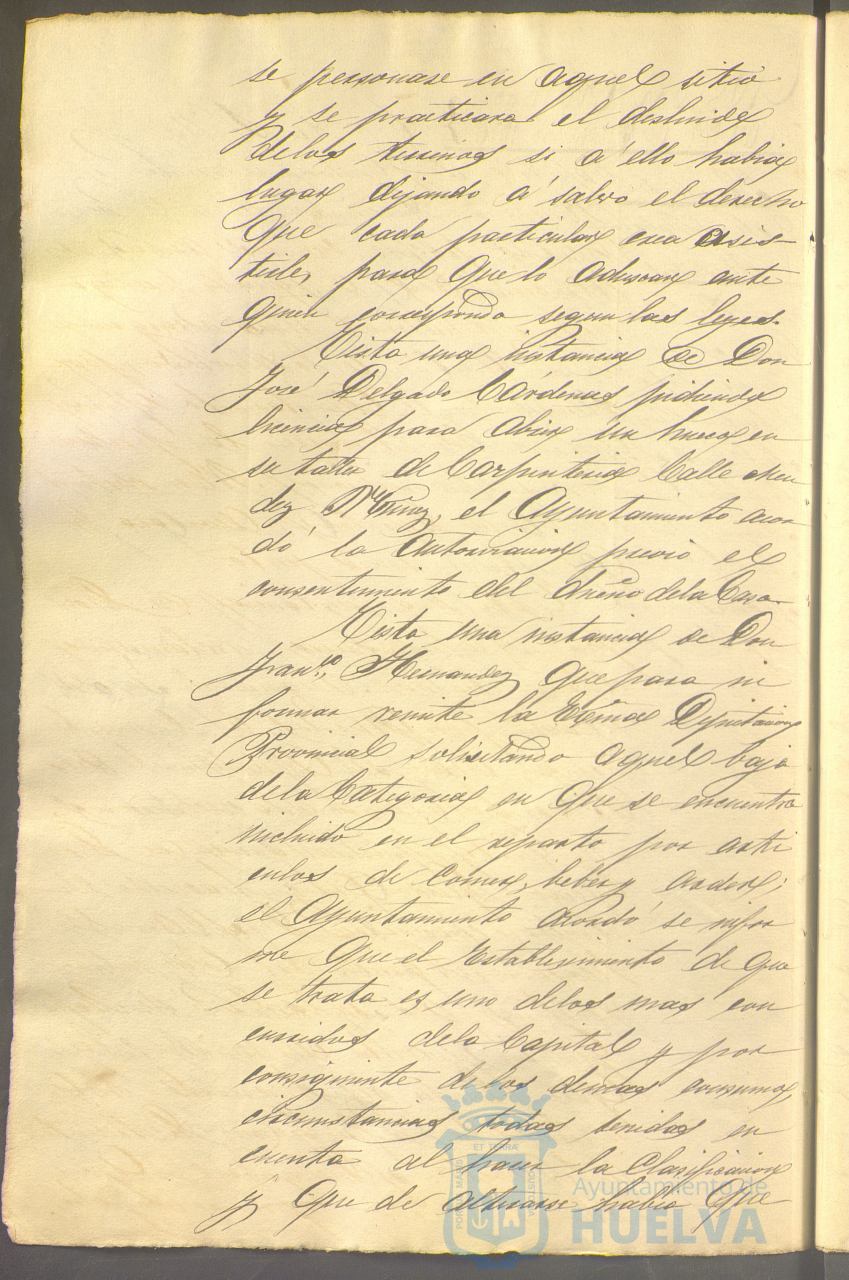 se personase en aquel sitio
y se practicara el deslinde
delos terrenos si á ello habia
lugar dejando á salvo el derecho
que cada particular crea asis-
tirle, para que lo aduzcan ante
quien corresponda segun las leyes.
Vista una instancia de Don
José Delgado Cárdenas pidiendo
licencia para abrir un hueco en
su taller de Carpinteria Calle Men
dez Nuñez, el Ayuntamiento acor
dó la autorizacion previo el
consentimiento del dueño dela Casa.
Vista una instancia de Don
Fran.co Hernandez que para in
formar remite la Exma Diputacion
Provincial solicitando aquel baja
dela Categoria en que se encuentra
incluido en el reparto por arti
culos de comer, beber y arder;
el Ayuntamiento acordó se infor
me que el establecimiento de que
se trata es uno delos mas con
curridos dela Capital y por
consiguiente de los demas consumo,
circunstancias todas tenidas en
cuenta al hacer la Clasificacion
y que de alterarse habia que
Ayuntamiento de
HUELVA